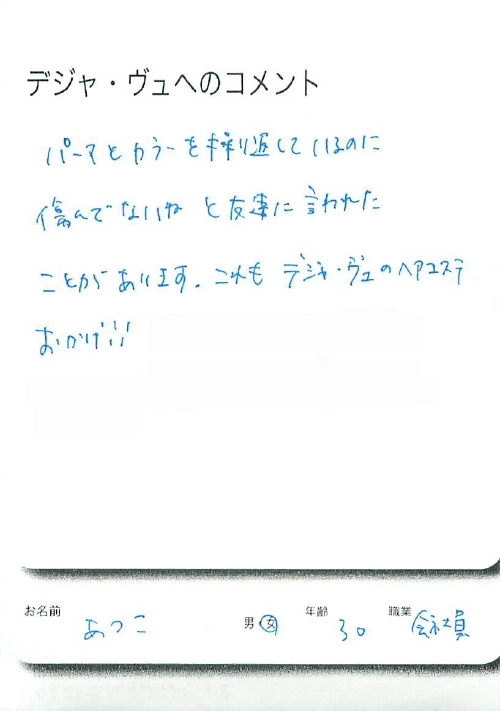 デジャ・ヴュへのコメント
パーマとカラーを繰り返しているのに
傷んでないね と友達に言われた
ことがあります。これも デジャ・ヴュのヘアエステ
おかげ!!!
お名前 あつこ 男・女 年齢 30 職業 会社員